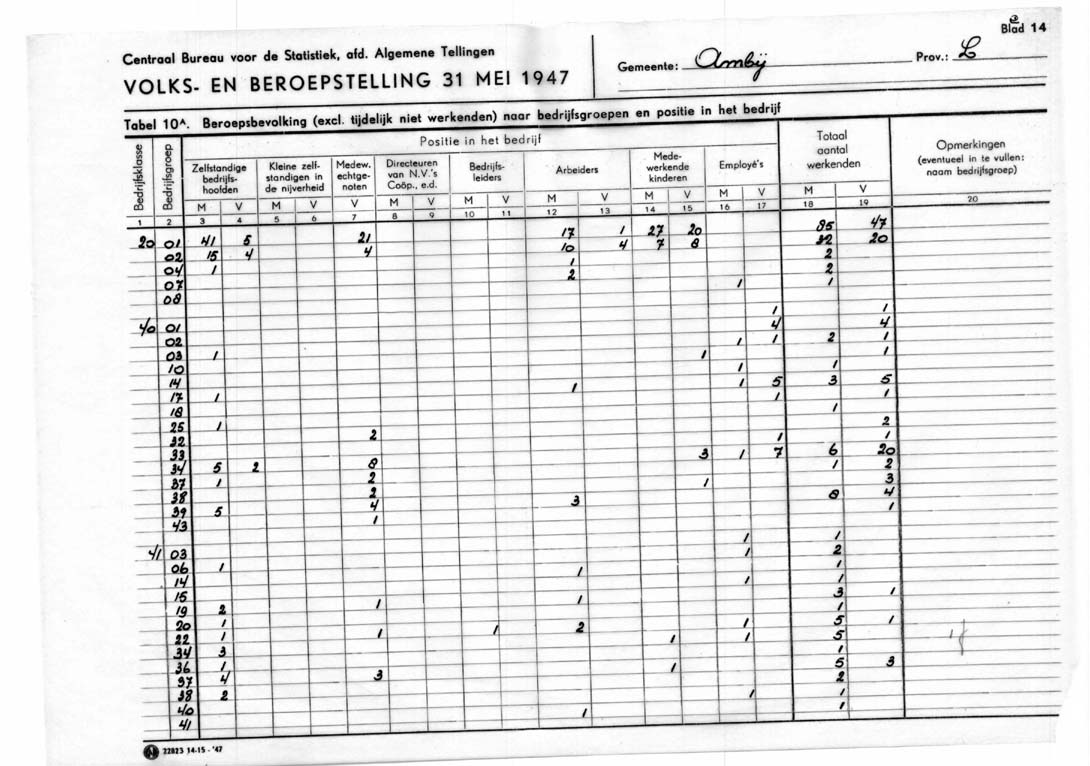 Blad 14
Centraal Bureau voor de Statistiek, afd. Algemene Tellingen
VOLKS- EN BEROEPSTELLING 31 MEI 1947
Gemeente: Ambij Prov.: L
Tabel 10A. Beroepsbevolking (excl. tijdelijk niet werkenden) naar bedrijfsgroepen en positie in het bedrijf
Bedrijfsklasse
Bedrijfsgroep
Positie in het bedrijf
Zelfstandige
bedrijfs-
hoofden
Kleine zelf-
standigen in
de nijverheid
Medew.
echtge-
noten
Directeuren
van N.V.'s
Coöp., e.d.
Bedrijfs-
leiders
Arbeiders
Mede-
werkende
kinderen
Employé's
Totaal
aantal
werkenden
Opmerkingen
(eventueel in te vullen:
naam bedrijfsgroep)
M V M V V M V M V M V M V M V M V
1 2 3 4 5 6 7 8 9 10 11 12 13 14 15 16 17 18 19 20
20 01 41 5 21 17 1 27 20 85 47
02 15 4 4 10 4 7 8 32 20
04 1 1 2
07 2 2
08 1 1
40 01 1 1
02 4 4
03 1 1 1 2 1
10 1 1
14 1 1
17 1 1 1 5 3 5
18 1 1
25 1 1
32 2 2
33 1 1
34 5 2 8 3 1 7 6 20
37 1 2 1 2
38 2 1 3
39 5 4 3 8 4
43 1 1
41 03 1 1
06 1 1 2
14 1 1
15 1 1
19 2 1 1 3 1
20 1 1
22 1 1 1 2 1 5 1
34 3 1 1 5
36 1 1
37 4 3 1 5 3
38 2 2
40 1 1
41 1 1
22823 14-15-'47